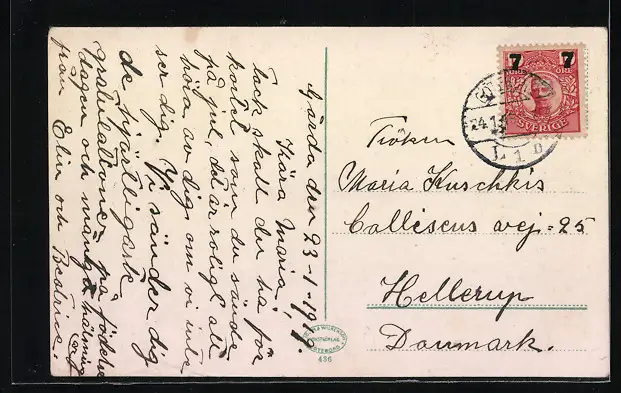 Gårda den 23-1-1919.
Kära Maria,
tack skall du ha för
kortet som du sände
på jul, det är roligt att
höra av dig om vi inte
ser dig. Vi sänder dig
de hjärtligaste
gratulationer på födelse
dagen och många hälsning
från Elin och
7 7
ÖRE ÖRE
SVERIGE
24.1
L 1 D
Fröken
Maria Kuschkis
Calliscus vej = 25
Hellerup
Danmark.
436